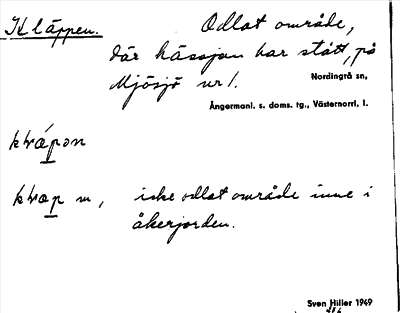 Kläppen. Odlat område,
där hässjan har stått, på
Mjösjö nr 1.
Nordingrå sn,
Ångermanl. s. doms. tg., Västernorrl. l.
m, icke odlat område inne i
åkerjorden.
Sven Hiller 1949